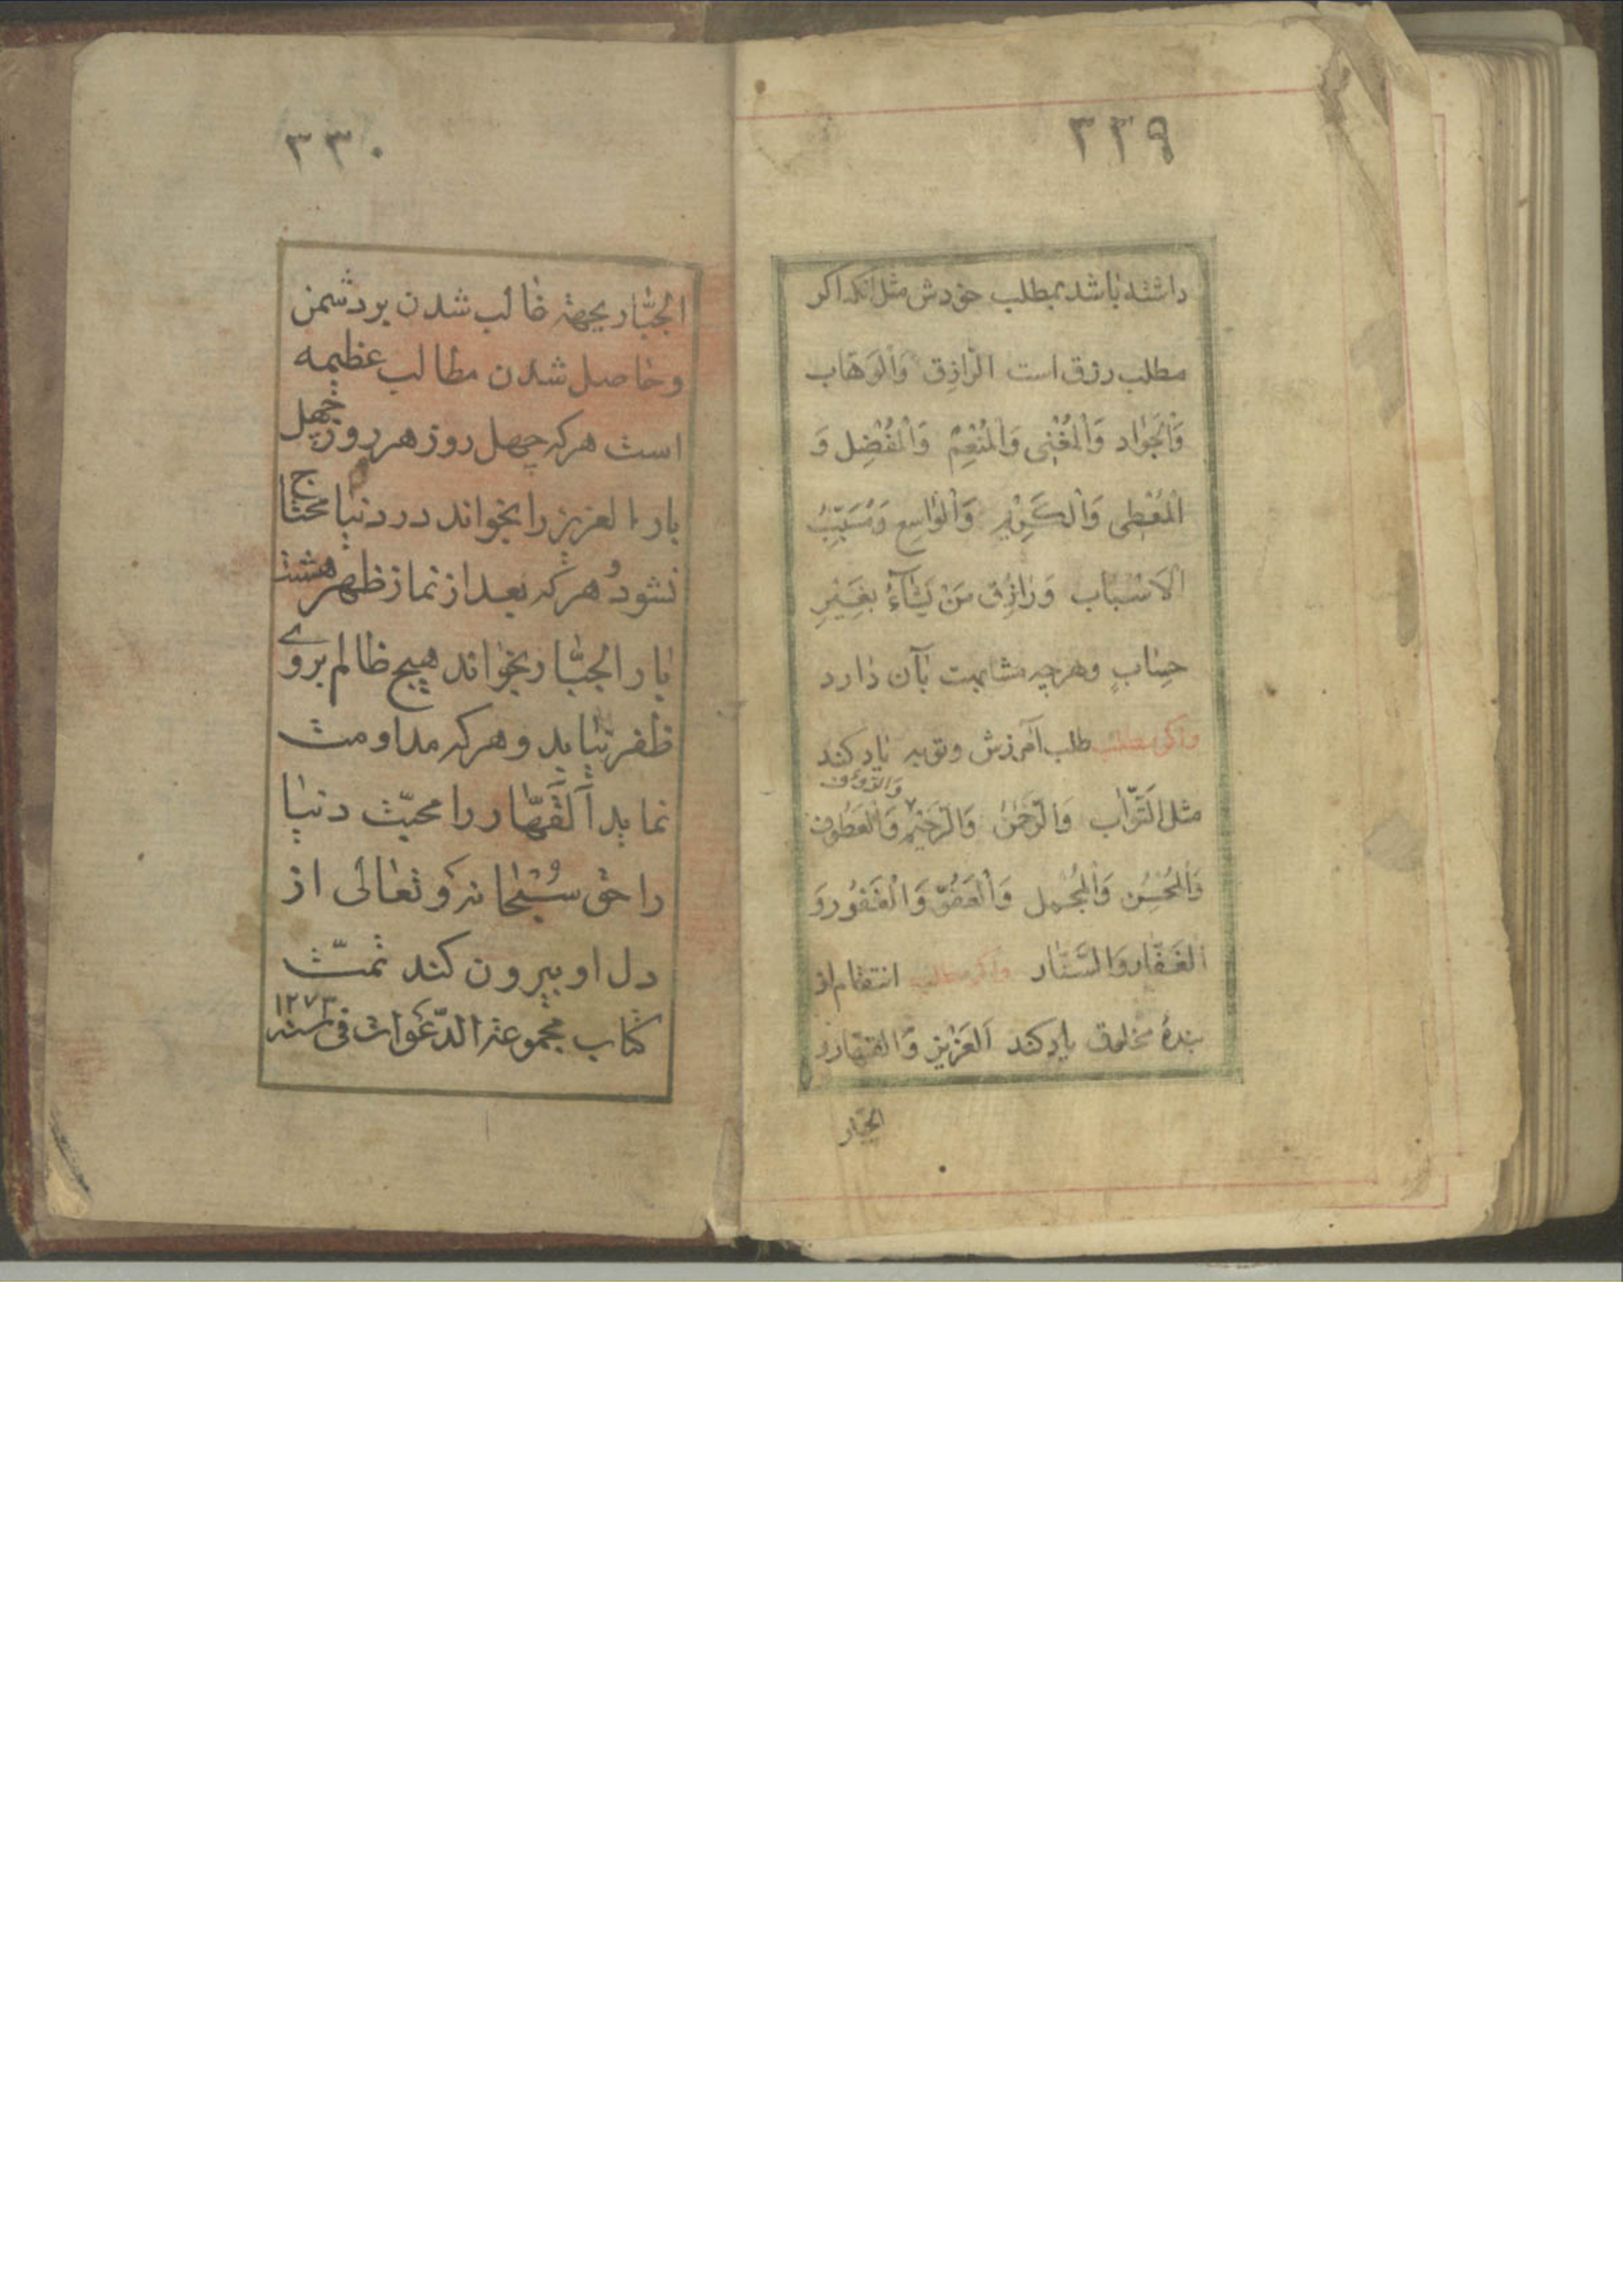 ۳۲۹
داشته باشد بمطلب خودش مثل انکه اکر
مطلب رزق است الرّازِق وَالوَهّاب
وَالْجَوٰاد وَالْمُغْنِی وَالْمُنْعِمُ وَالْمُفْضِل وَ
الْمُعْطِی وَالْکَرِیْمِ وَالْوٰاسِع وَمُسَبِّبُ
الْاَسْبٰاب وَرٰازِق مَنْ یَشٰآءُ بِغَیْرِ
حِسٰابٍ وهرچه مشابهت بآن دٰارد
واکر مطلب طلب آمرزش وتوبه یاد کند
وَالرَّؤُف
مثل التَّوّٰاب وَالرَّحْمٰنُ وَالرَّحیْمِ وَالْعَطُوف
وَالْمُحْسِن وَالْمُجْمِل وَالْعَفُوّ وَالْغَفُور وَ
الغَفّٰار وَالسَّتّٰار واکر مطلب انتقام از
بندهٔ مخلوق یاد کند اَلعَزٖیز وَالقَهّٰار و
الجبّار
۳۳۰
الجبّٰار بجهته غالب شدن بر دشمن
وحاصل شدن مطالب عظیمه
است هرکه چهل روز هر روز چهل
بار العزیز را بخواند در دنیا محتاج
نشود و هرکه بعد از نماز ظهر هشت
بار الجبّٰار بخوٰاند هیچ ظالم بروی
ظفر نیابد وهرکه مداومت
نماید اَلقَهّٰار را محبّت دنیا
را حق سُبْحٰانَهُ وَتعٰالی از
دل او بیرون کند تمّت
کتاب مجموعة الدّعَوات فی سنه ۱۲۷۳